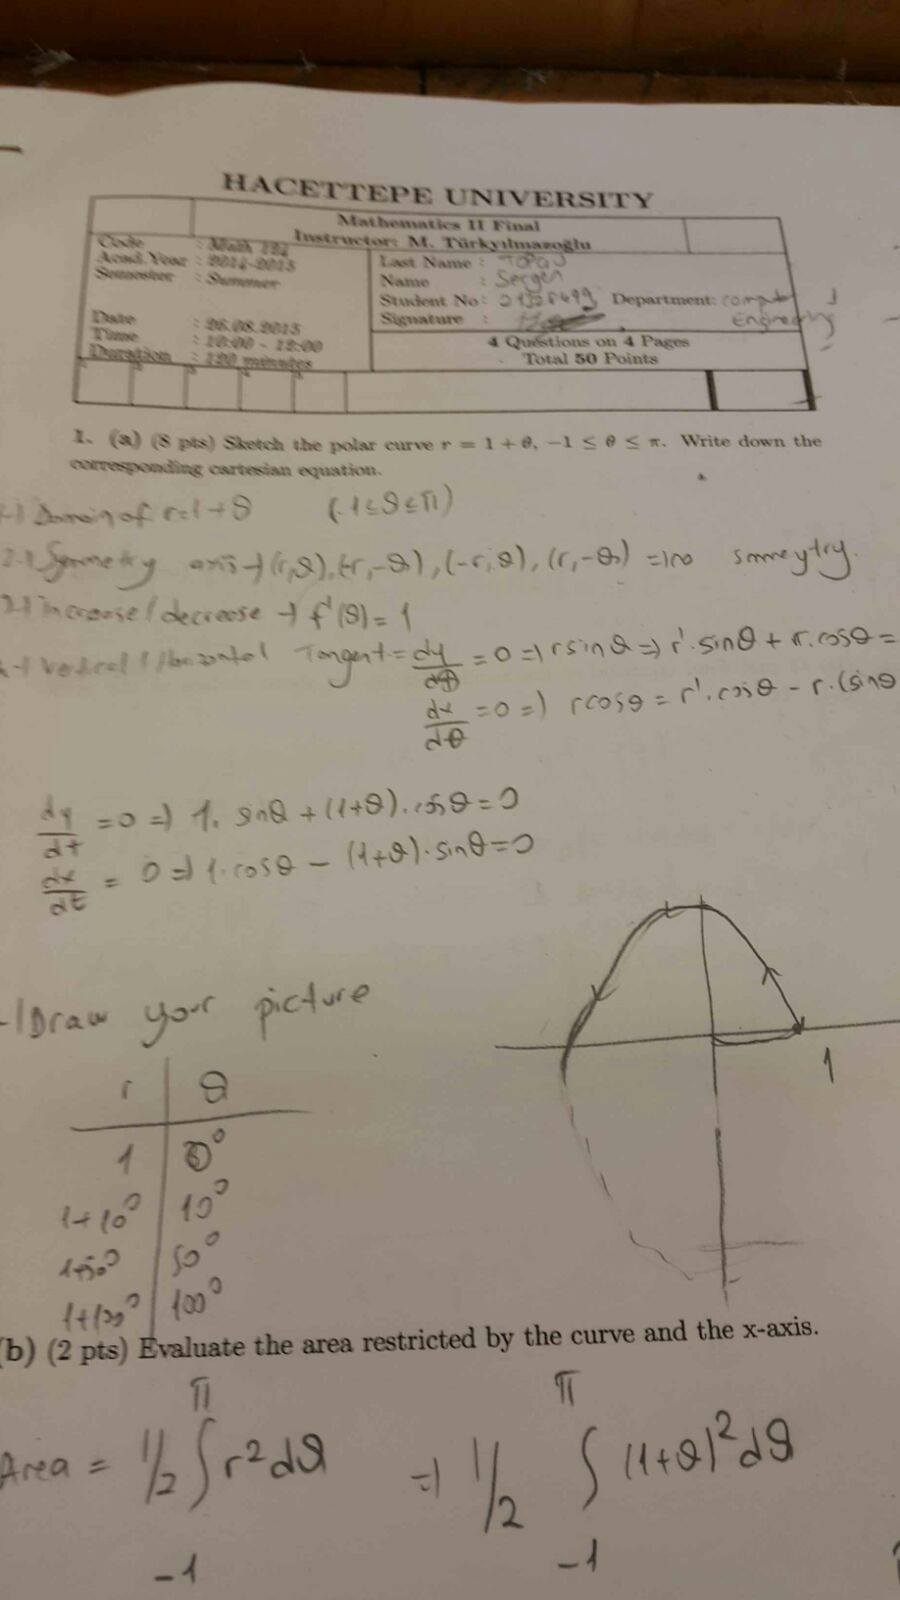 HACETTEPE UNIVERSITY
Mathematics II Final
Instructor: M. Türkyılmazoğlu
Code : Math 124
Acad. Year : 2014-2015
Semester : Summer
Date : 26.08.2015
Time : 10:00 - 12:00
Duration : 120 minutes
Last Name :
Name : Sergen
Student No: Department: Computer
Engineering
Signature :
4 Questions on 4 Pages
Total 50 Points
1. (a) (8 pts) Sketch the polar curve r = 1 + θ, −1 ≤ θ ≤ π. Write down the
corresponding cartesian equation.
Domain of r=1+θ (-1≤θ≤π)
Symmetry axis → (r,θ), (-r,-θ), (-r,θ), (r,-θ) =) no smmeytry.
increase/decrease → f'(θ) = 1
Vertical / Horizontal Tangent = dy/dθ = 0 =) rsinθ =) r'.sinθ + r.cosθ =
dx/dθ = 0 =) rcosθ = r'.cosθ - r.(sinθ
dy/dt = 0 =) 1. sinθ + (1+θ).cosθ = 0
dx/dt = 0 =) 1.cosθ - (1+θ).sinθ = 0
Draw your picture
r θ
1 0°
1+10° 10°
1+50° 50°
1+100° 100°
1
(b) (2 pts) Evaluate the area restricted by the curve and the x-axis.
Area = 1/2 ∫ π -1 r² dθ =) 1/2 ∫ π -1 (1+θ)² dθ